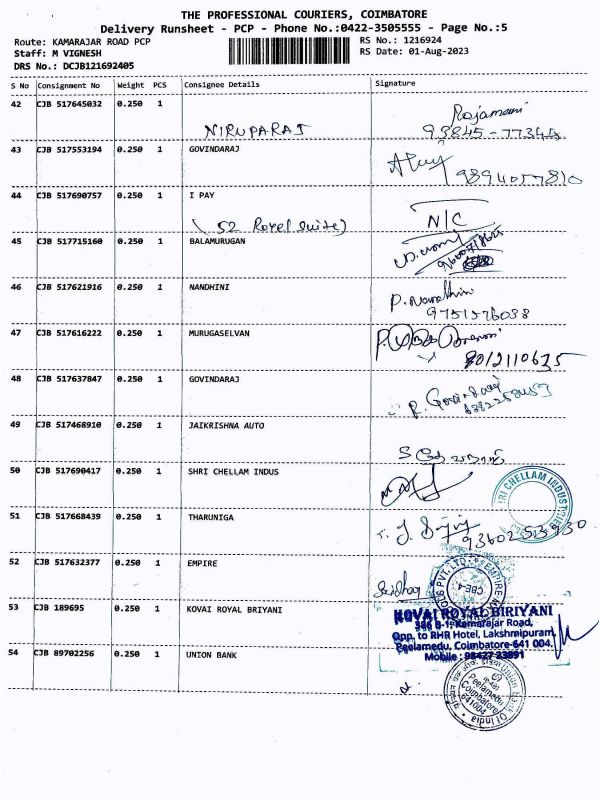 THE PROFESSIONAL COURIERS, COIMBATORE
Delivery Runsheet - PCP - Phone No.:0422-3505555 - Page No.:5
Route: KAMARAJAR ROAD PCP RS No.: 1216924
Staff: M VIGNESH RS Date: 01-Aug-2023
DRS No.: DCJB121692405
S No Consignment No Weight PCS Consignee Details Signature
42 CJB 517645032 0.250 1 Rajamani
NIRUPARAJ 93845-77344
43 CJB 517553194 0.250 1 GOVINDARAJ
9894057810
44 CJB 517690757 0.250 1 I PAY
(52 Royel Suite) N/C
45 CJB 517715160 0.250 1 BALAMURUGAN
46 CJB 517621916 0.250 1 NANDHINI
P. Nandhini
9751576038
47 CJB 517616222 0.250 1 MURUGASELVAN
8012110635
48 CJB 517637847 0.250 1 GOVINDARAJ
R. Govindaraj
49 CJB 517468910 0.250 1 JAIKRISHNA AUTO
50 CJB 517690417 0.250 1 SHRI CHELLAM INDUS
RI CHELLAM INDUSTRIES
51 CJB 517668439 0.250 1 THARUNIGA
9360253930
52 CJB 517632377 0.250 1 EMPIRE
OLS PVT. LTD. EMPIRE
CBE-4
53 CJB 189695 0.250 1 KOVAI ROYAL BRIYANI
KOVAI ROYAL BIRIYANI
386 B-1, Kamarajar Road,
Opp. to RHR Hotel, Lakshmipuram,
Peelamedu, Coimbatore-641 004.
Mobile : 98427 23891
54 CJB 89702256 0.250 1 UNION BANK
Union Bank Of India
Peelamedu
Coimbatore
641004